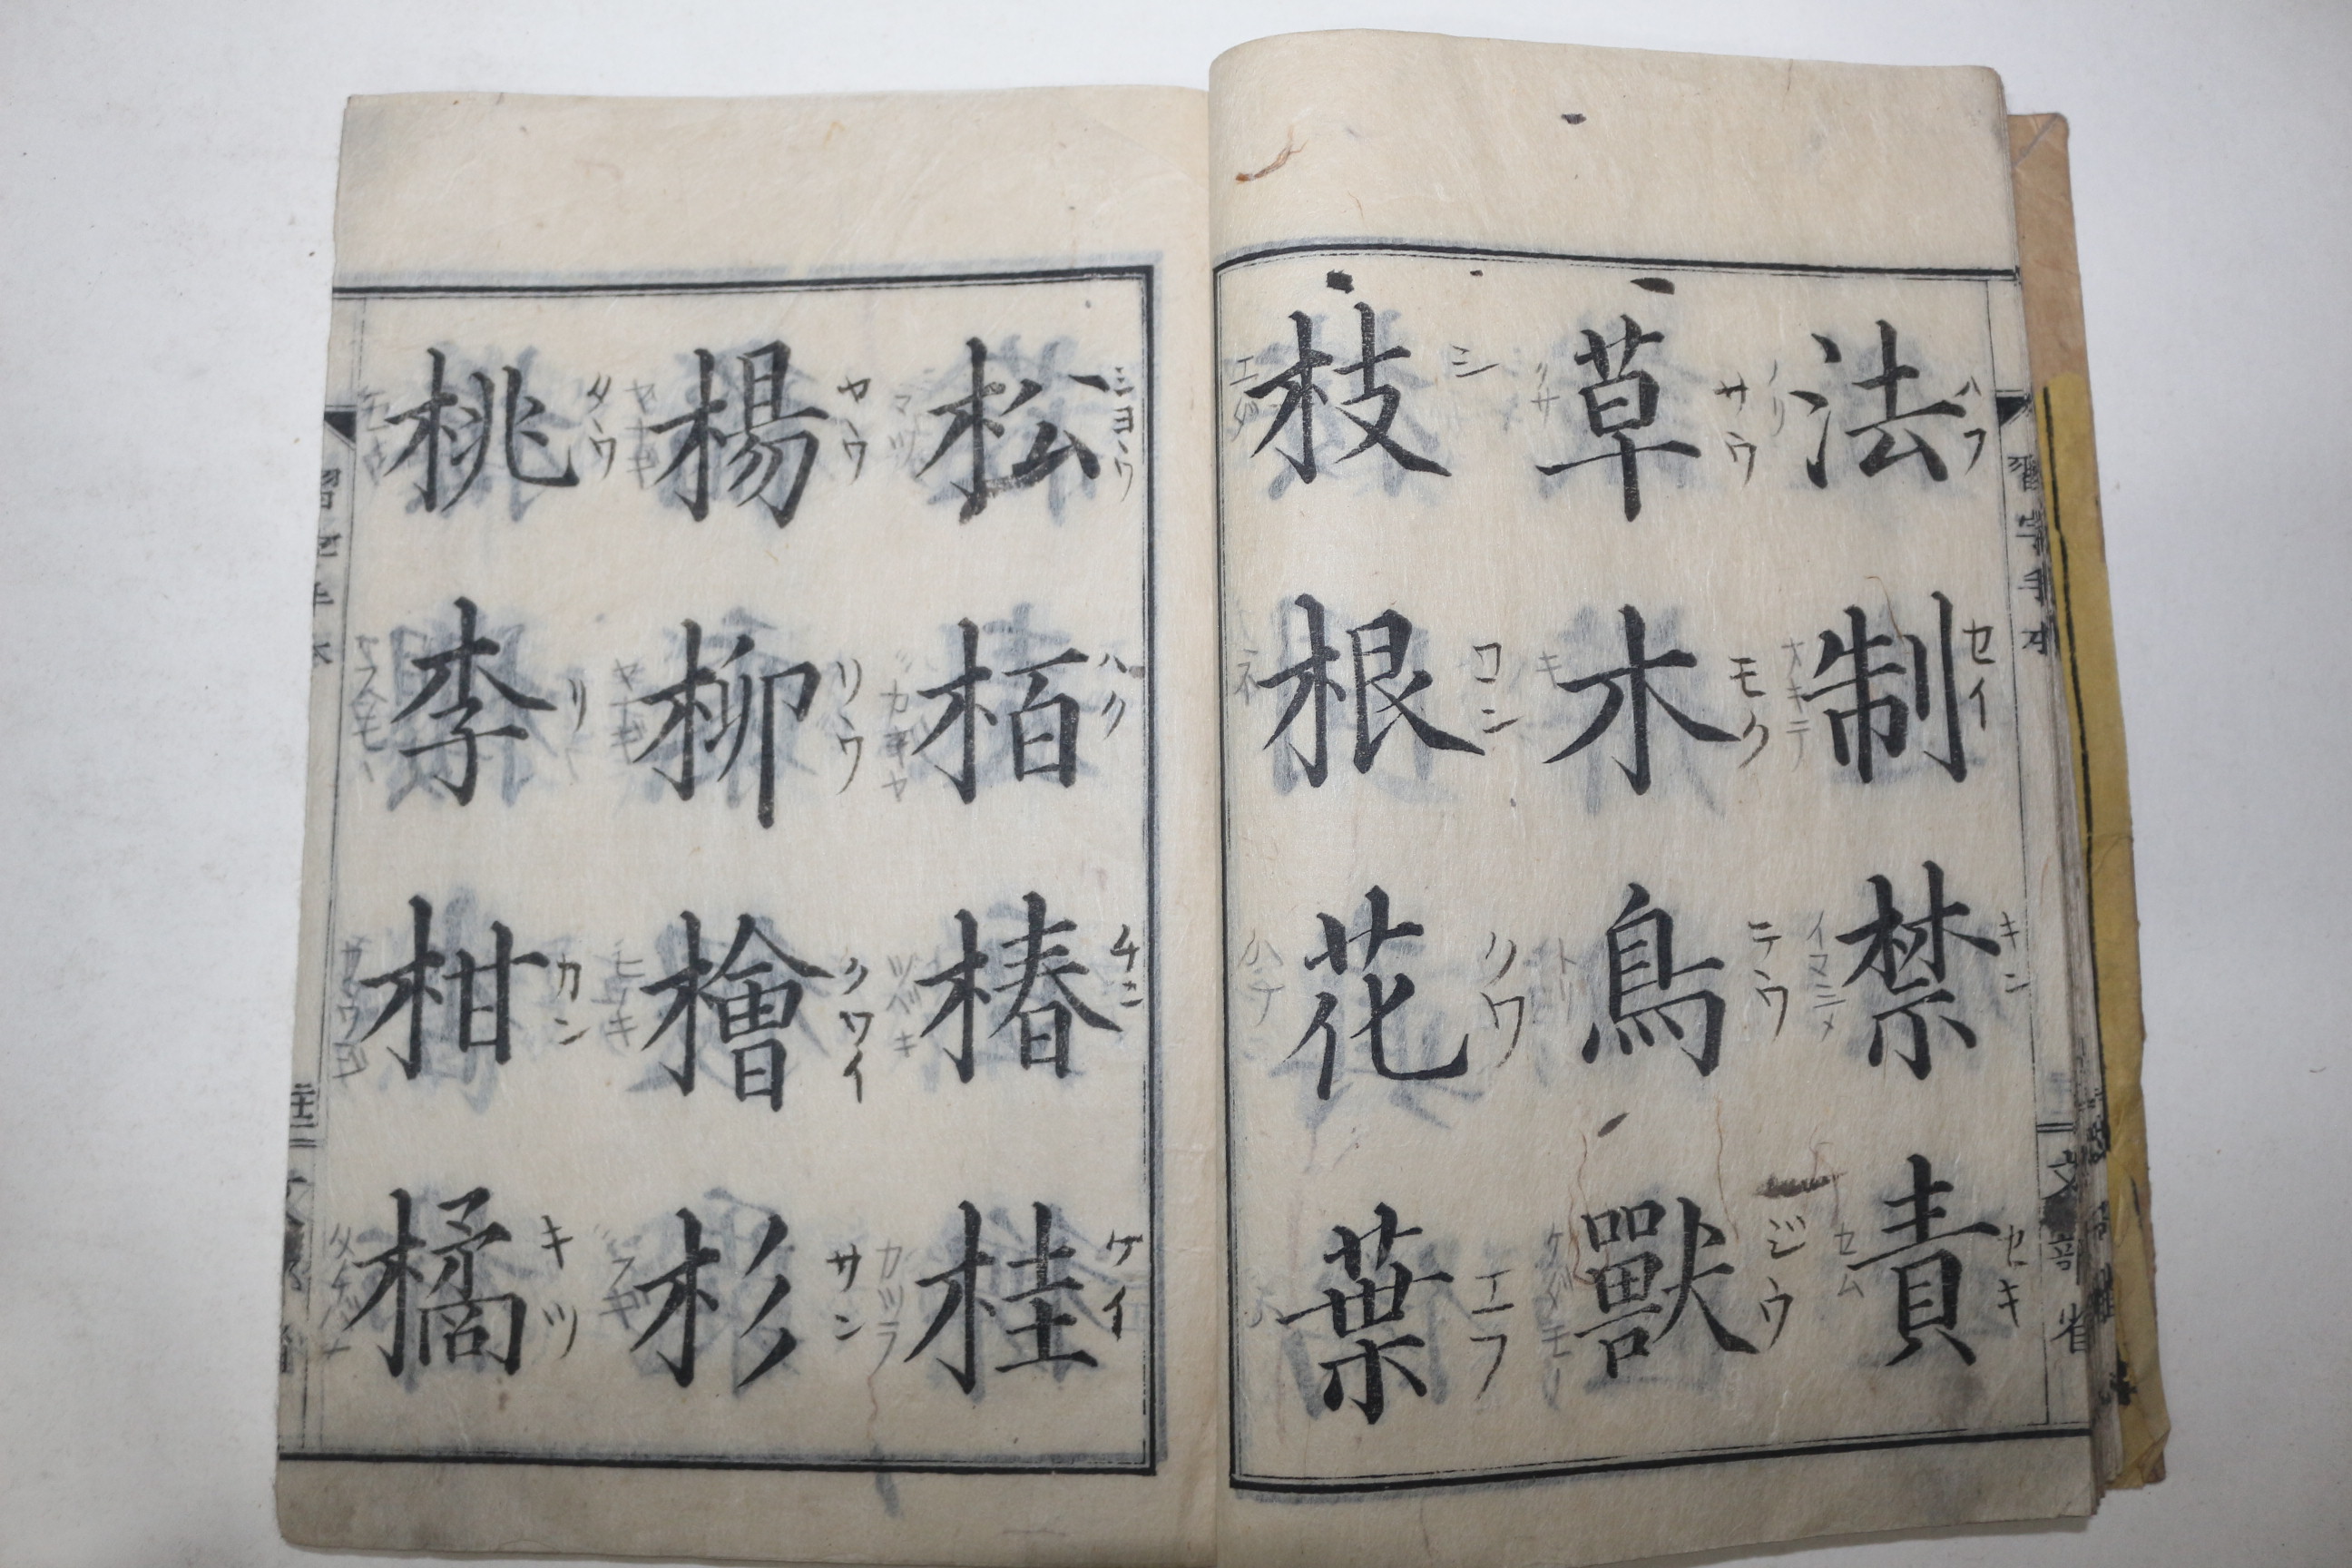 法制禁責
草木鳥獸
枝根花葉
松栢椿桂
楊柳檜杉
桃李柑橘
ハフ
セイ
キン
セキ
ノリ
オキテ
イマシメ
セム
サウ
モク
テウ
ジウ
クサ
キ
トリ
ケダモノ
シ
コン
クワ
エフ
エダ
ネ
ハナ
シヨウ
ハク
チン
ケイ
マツ
カヤ
ツバキ
カツラ
ヤウ
リウ
クワイ
サン
ヤナキ
ヤナキ
ヒノキ
スギ
タウ
リ
カン
キツ
スモヽ
タチバナ
習字手本
文部省